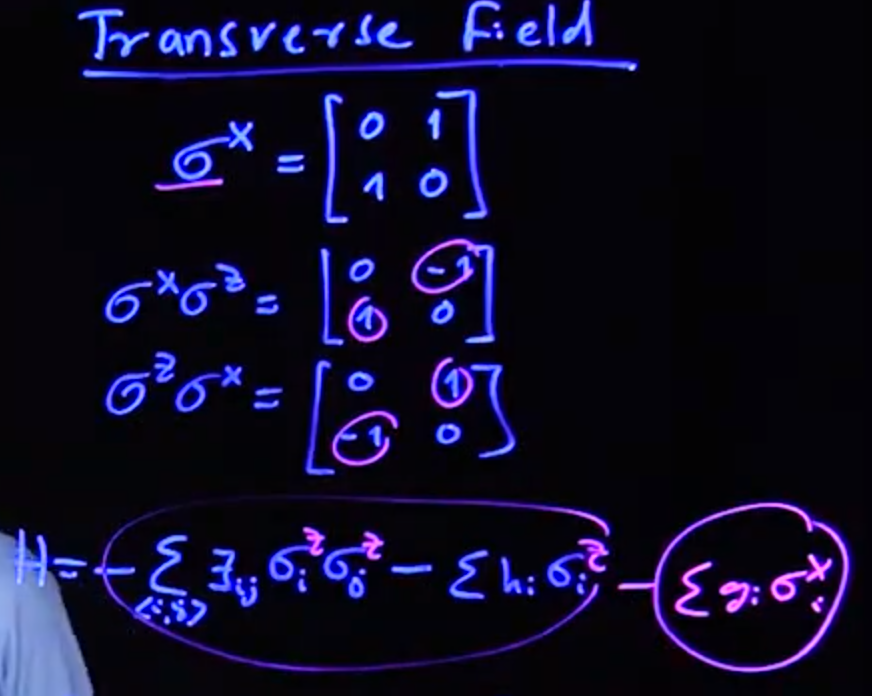 Transverse Field
σ^x = [0 1; 1 0]
σ^x σ^z = [0 -1; 1 0]
σ^z σ^x = [0 1; -1 0]
H = - Σ_{<i,j>} J_{ij} σ_i^z σ_j^z - Σ h_i σ_i^z - Σ g_i σ_i^x